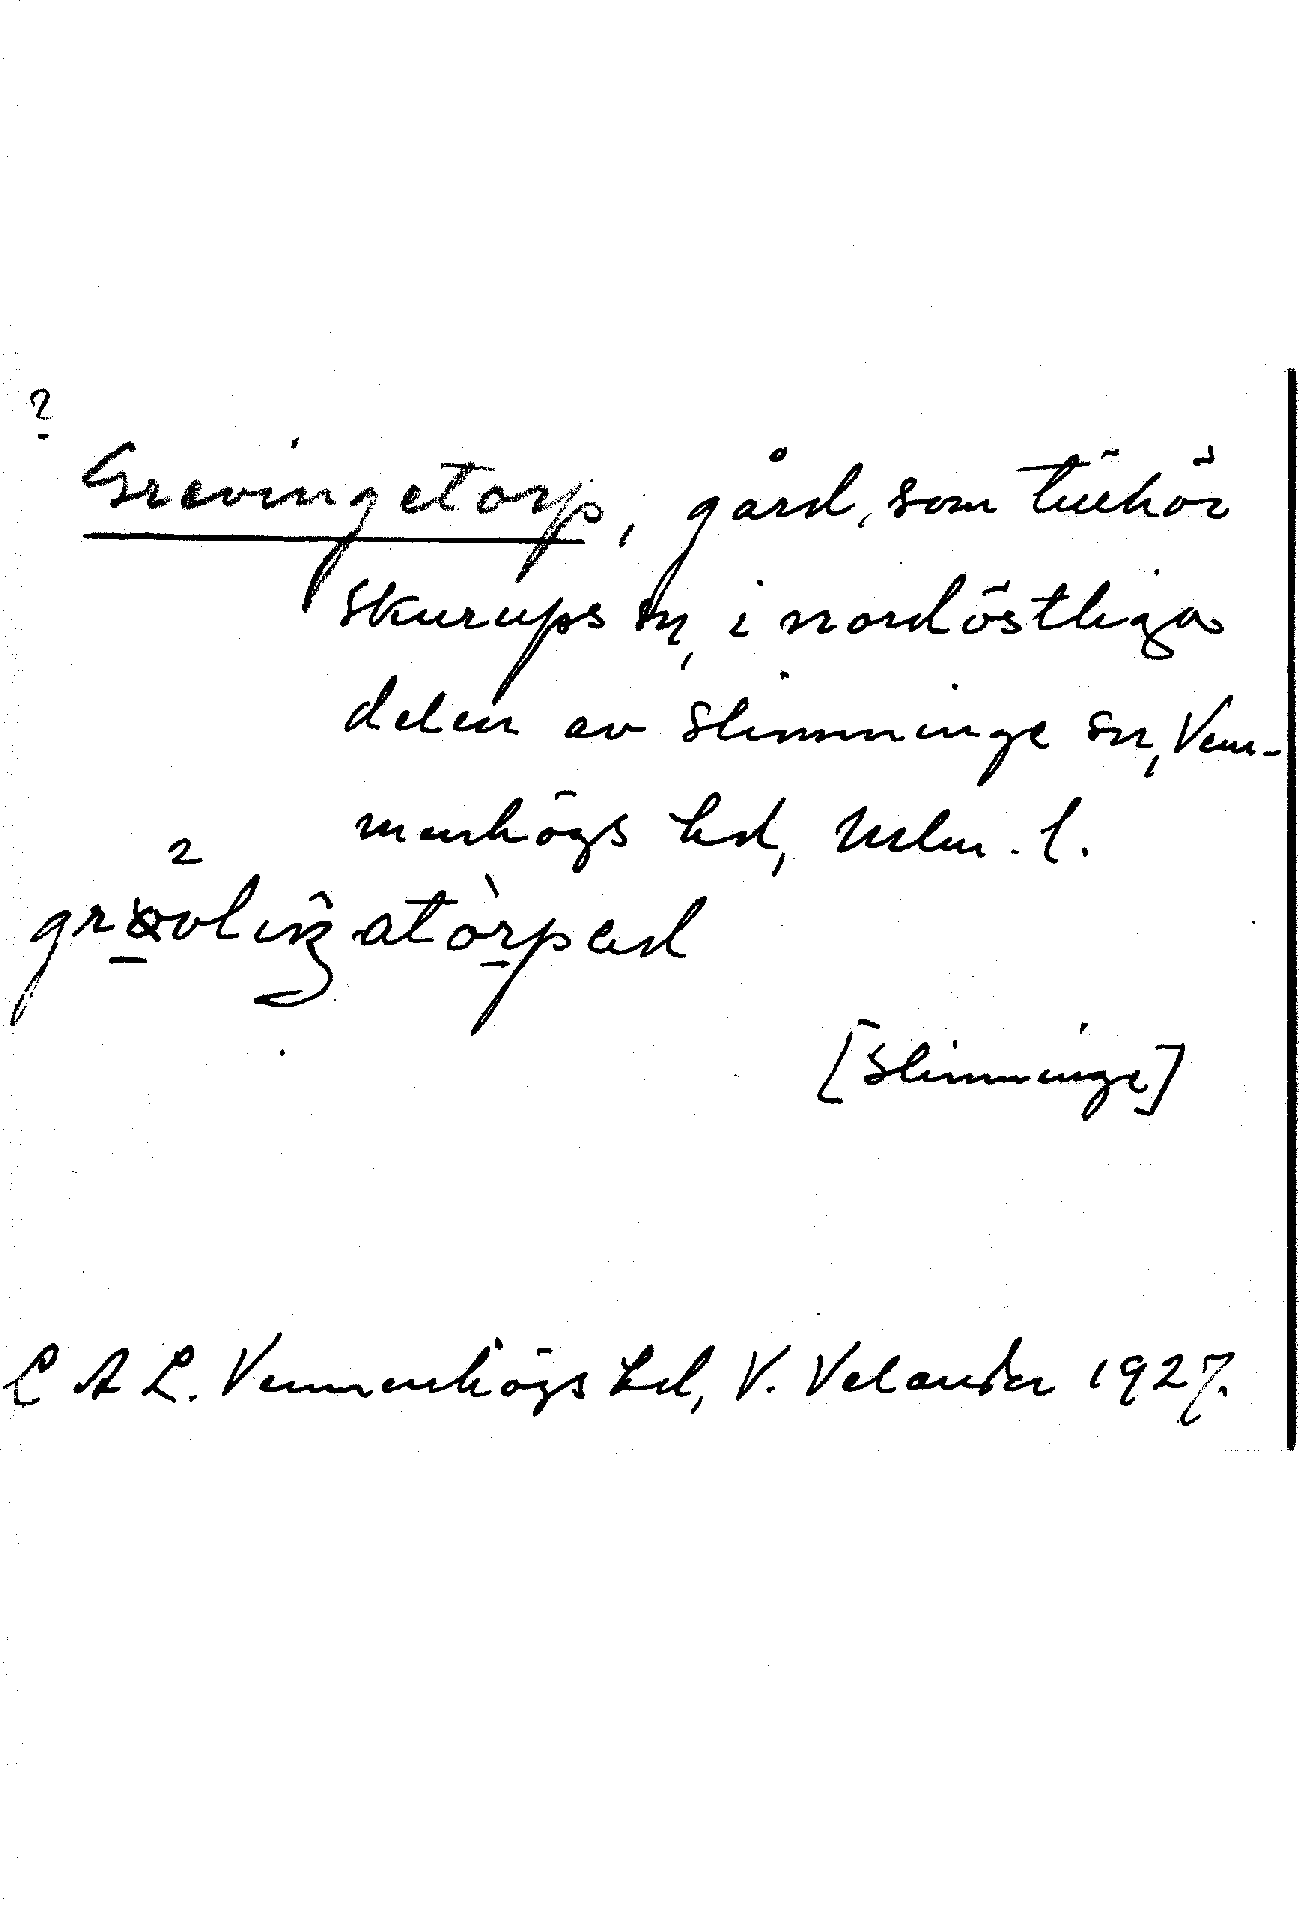 ?
Grevingetorp, gård, som tillhör
Skurups sn, i nordöstliga
delen av Slimminge sn, Vem-
menhögs hd, Mlm. l.
2
[Slimminge]
L A L. Vemmenhögs hd, V. Velander 1927.